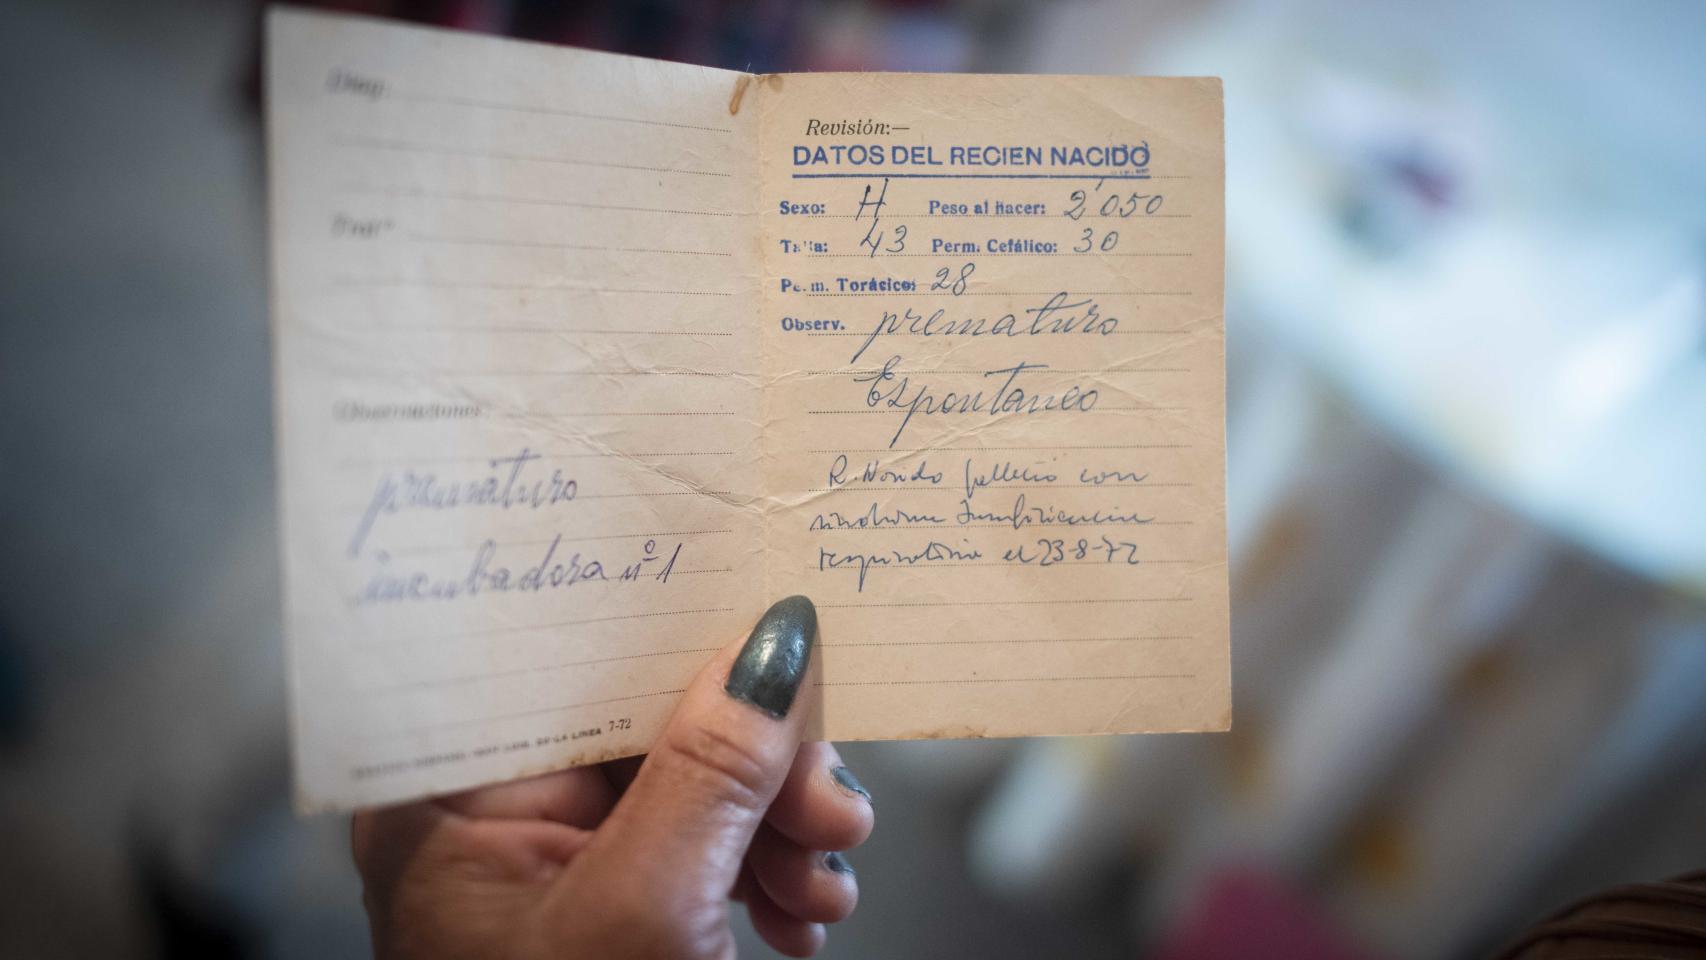 Diag.
Trat°
Observaciones:
prematuro
incubadora nº 1
LA LINEA 7-72
Revisión:—
DATOS DEL RECIEN NACIDO
Sexo: H Peso al Nacer: 2'050
Talla: 43 Perm. Cefálico: 30
Perm. Torácico: 28
Observ. prematuro
Espontaneo
R. Nacido falleció con
sindrome Insuficiencia
respiratoria el 23-8-72